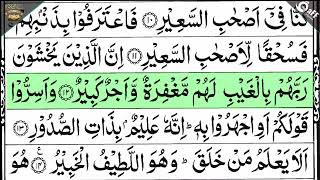 كُنَّا فِیْۤ اَصْحٰبِ السَّعِیْرِ ﴿۱۰﴾ فَاعْتَرَفُوْا بِذَنْۢبِهِمْ ۚ
فَسُحْقًا لِّاَصْحٰبِ السَّعِیْرِ ﴿۱۱﴾ اِنَّ الَّذِیْنَ یَخْشَوْنَ
رَبَّهُمْ بِالْغَیْبِ لَهُمْ مَّغْفِرَةٌ وَّاَجْرٌ كَبِیْرٌ ﴿۱۲﴾ وَاَسِرُّوْا
قَوْلَكُمْ اَوِ اجْهَرُوْا بِهٖ ؕ اِنَّهٗ عَلِیْمٌۢ بِذَاتِ الصُّدُوْرِ ﴿۱۳﴾
اَلَا یَعْلَمُ مَنْ خَلَقَ ؕ وَهُوَ اللَّطِیْفُ الْخَبِیْرُ ﴿۱۴﴾ هُوَ